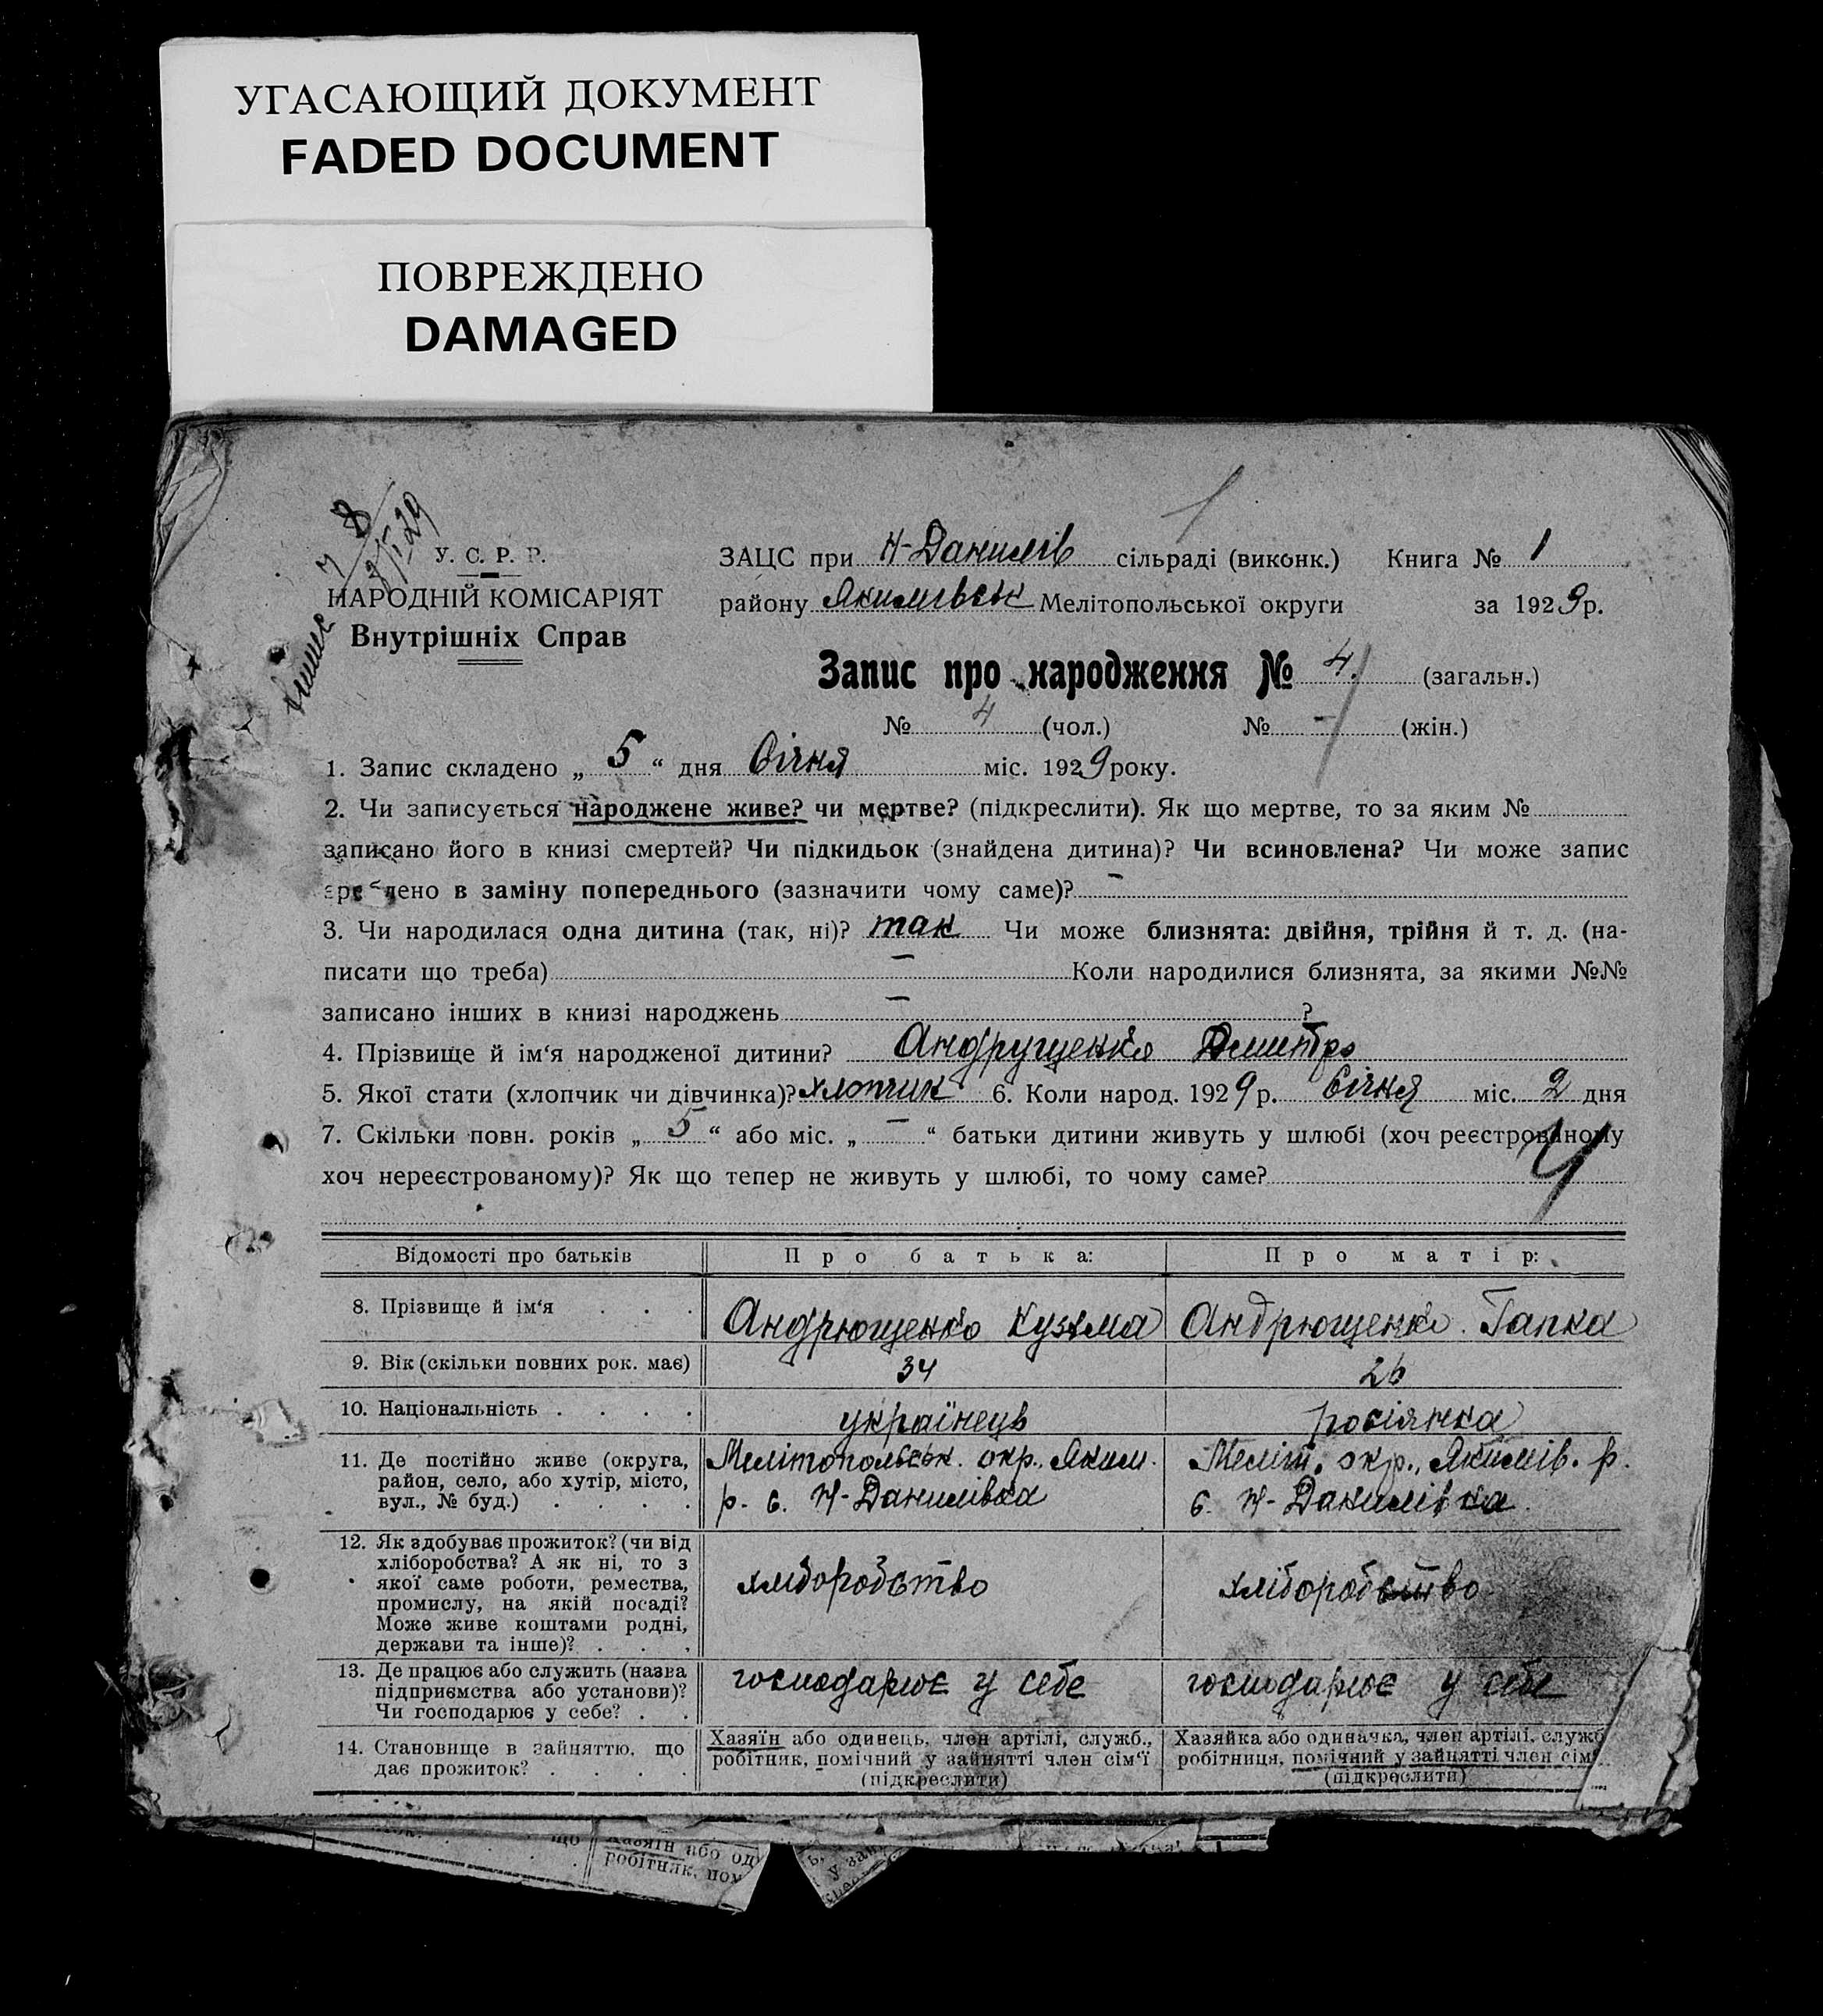 УГАСАЮЩИЙ ДОКУМЕНТ
FADED DOCUMENT
ПОВРЕЖДЕНО
DAMAGED
У. С. Р. Р.
НАРОДНІЙ КОМІСАРІЯТ
Внутрішніх Справ
ЗАЦС при Н-Данилів сільраді (виконк.) Книга № 1
району Якимівськ Мелітопольської округи за 1929р.
Запис про народження № 4. (загальн.)
№ 4 (чол.) № – (жін.)
1. Запис складено „ 5 “ дня Січня міс. 1929 року.
2. Чи записується народжене живе? чи мертве? (підкреслити). Як що мертве, то за яким №
записано його в книзі смертей? Чи підкидьок (знайдена дитина)? Чи всиновлена? Чи може запис
зроблено в заміну попереднього (зазначити чому саме)? –
3. Чи народилася одна дитина (так, ні)? так Чи може близнята: двійня, трійня й т. д. (на-
писати що треба) – Коли народилися близнята, за якими №№
записано інших в книзі народжень – ?
4. Прізвище й ім‘я народженої дитини? Андрущенко Дмитро
5. Якої стати (хлопчик чи дівчинка)? хлопчик 6. Коли народ. 1929 р. Січня міс. 2 дня
7. Скільки повн. років „ 5 “ або міс. „ – “ батьки дитини живуть у шлюбі (хоч реєстрованому
хоч нереєстрованому)? Як що тепер не живуть у шлюбі, то чому саме?
Відомості про батьків Про батька: Про матір:
8. Прізвище й ім‘я . . . Андрющенко Кузьма Андрющенко Гапка
9. Вік (скільки повних рок. має) 34 26
10. Національність . . . . українець росіянка
11. Де постійно живе (округа, Мелітопольськ. окр., Яким. Меліт. окр., Якимів. р.
район, село, або хутір, місто, р. с. Н-Данилівка с. Н-Данилівка.
вул., № буд.) . . . .
12. Як здобуває прожиток? (чи від
хліборобства? А як ні, то з
якої саме роботи, ремества, хліборобство хліборобство
промислу, на якій посаді?
Може живе коштами родні,
держави та інше)? . . .
13. Де працює або служить (назва господарює у себе господарює у себе
підприємства або установи)?
Чи господарює у себе? . .
14. Становище в зайняттю, що Хазяїн або одинець, член артілі, служб., Хазяйка або одиначка, член артілі, служб
дає прожиток? . . . . робітник, помічний у зайнятті член сім‘ї робітниця, помічний у зайнятті член сім
(підкреслити) (підкреслити)
що Хазяїн або од
робітник, пом
у зай